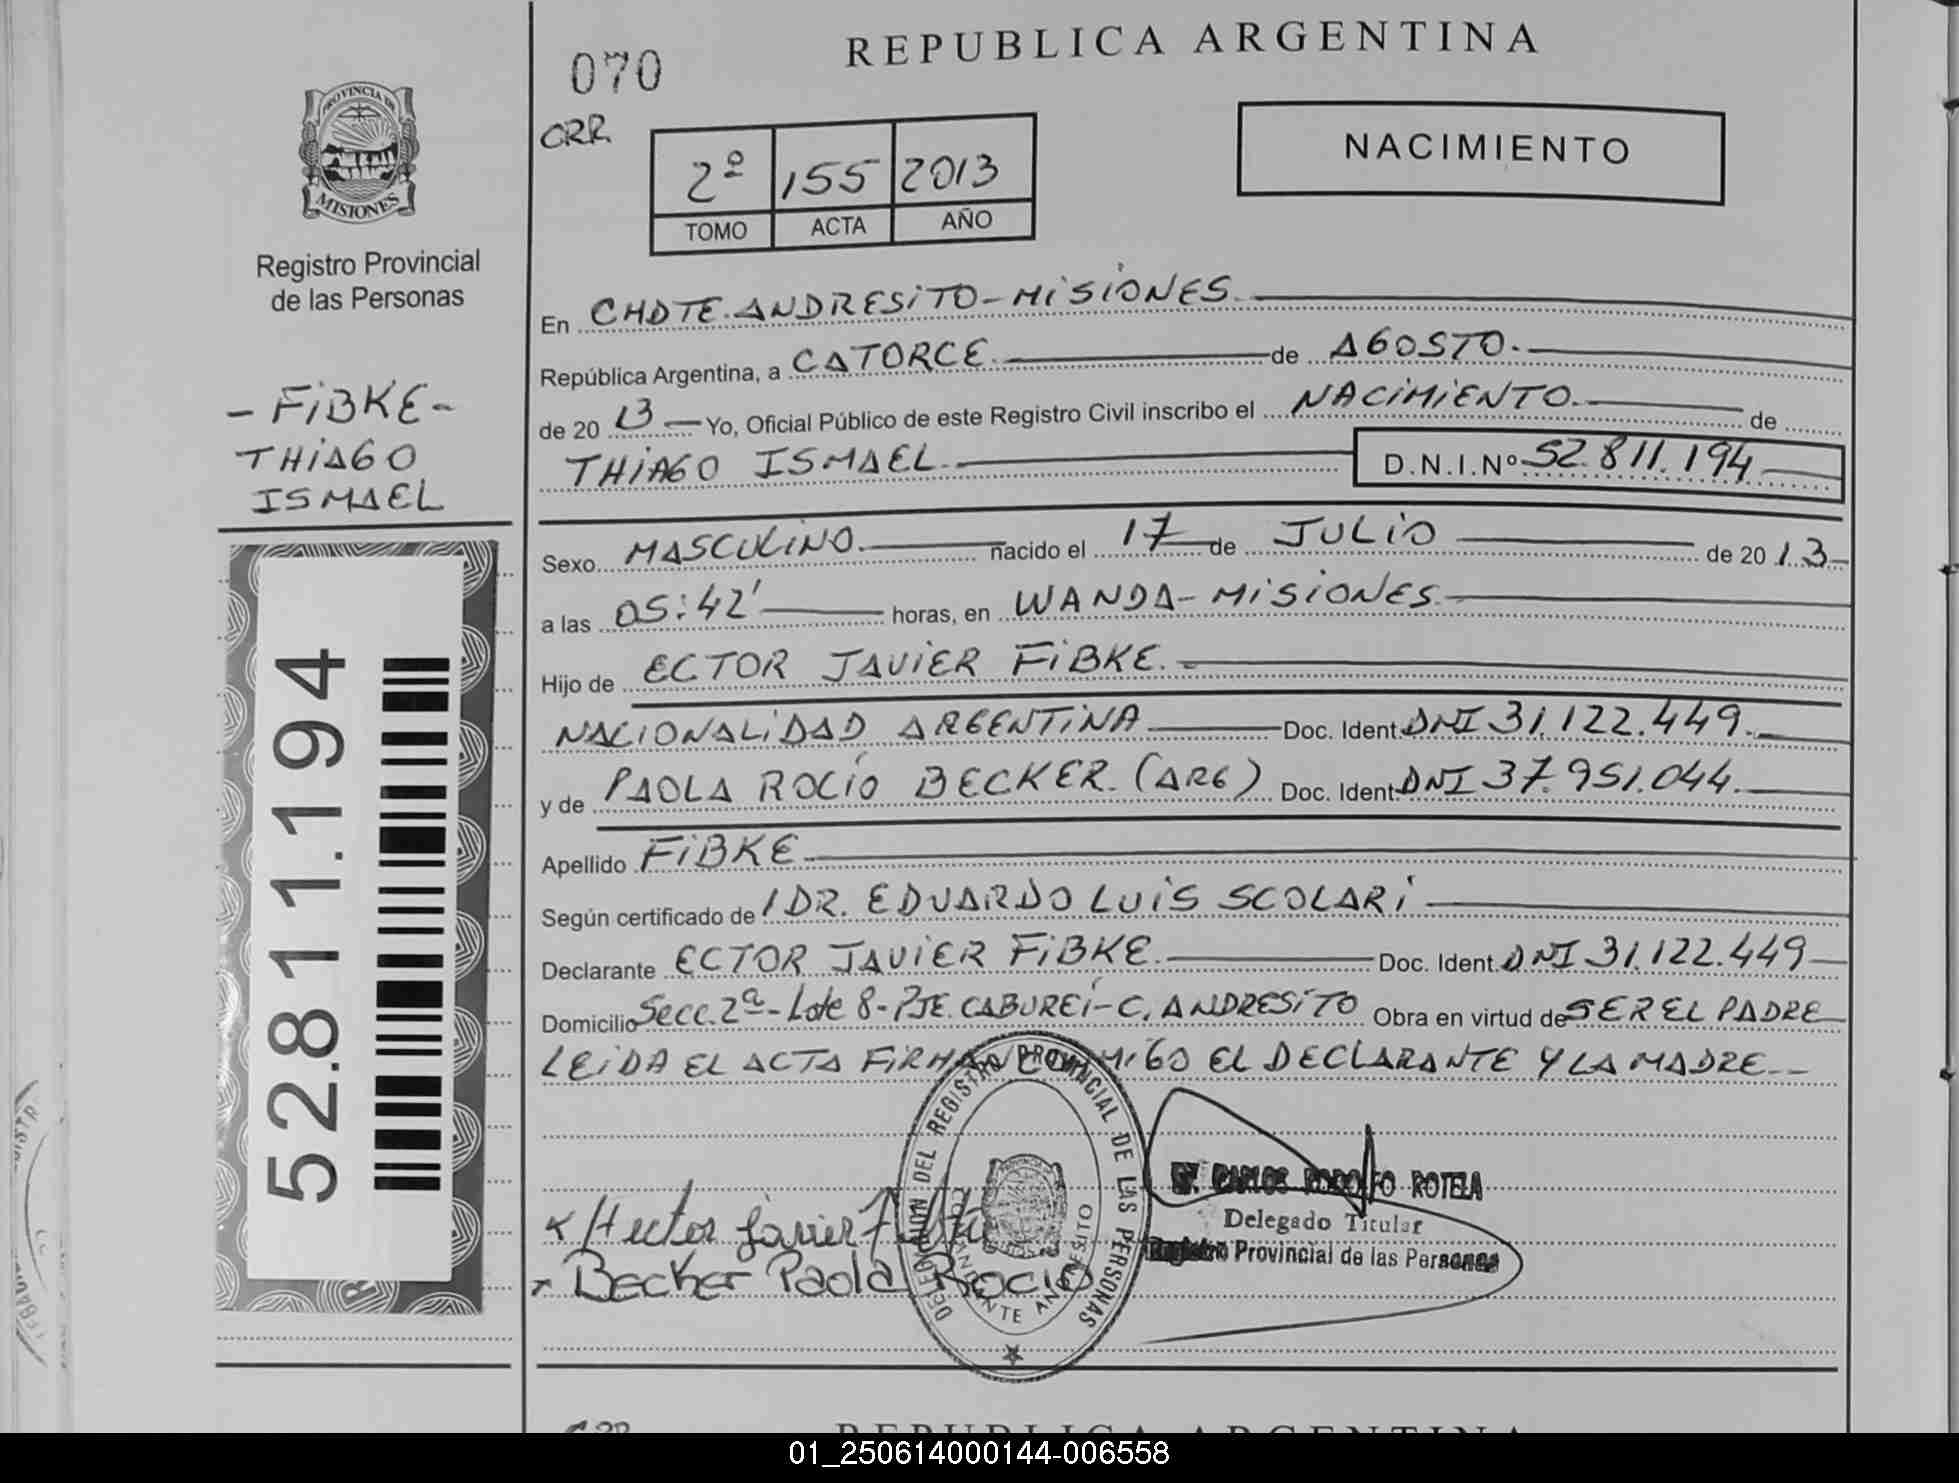 REPUBLICA ARGENTINA
070
CRR
NACIMIENTO
2º 155 2013
TOMO ACTA AÑO
PROVINCIA DE
MISIONES
Registro Provincial
de las Personas
- FiBKE -
THiAGO
ISMAEL
52.811.194
En CHDTE. ANDRESiTO - MiSiONES
República Argentina, a CATORCE de AGOSTO.
de 20 13 Yo, Oficial Público de este Registro Civil inscribo el NACiMiENTO de
THiAGO ISMAEL D.N.I.Nº 52.811.194
Sexo MASCULiNO nacido el 17 de JULiO de 20 13
a las 05:42' horas, en WANDA - MiSiONES
Hijo de ECTOR JAViER FiBKE.
NACIONALiDAD ARGENTiNA Doc. Ident. DNI 31.122.449.
y de PAOLA ROCÍO BECKER. (ARG) Doc. Ident. DNI 37.951.044.
Apellido FiBKE
Según certificado de / DR. EDUARDO LUiS SCOLARi
Declarante ECTOR JAViER FiBKE. Doc. Ident. DNI 31.122.449
Domicilio Secc. 2ª - Lote 8 - PJE. CABUREÍ - C. ANDRESiTO Obra en virtud de SER EL PADRE
LEiDA EL ACTA FiRMAN CONMiGO EL DECLARANTE Y LA MADRE --
DELEGACION DEL REGISTRO PROVINCIAL DE LAS PERSONAS
COMANDANTE ANDRESITO
CARLOS RODOLFO ROTELA
Delegado Titular
Registro Provincial de las Personas
Hector Javier
Becker Paola Rocio
REPUBLICA ARGENTINA
01_250614000144-006558